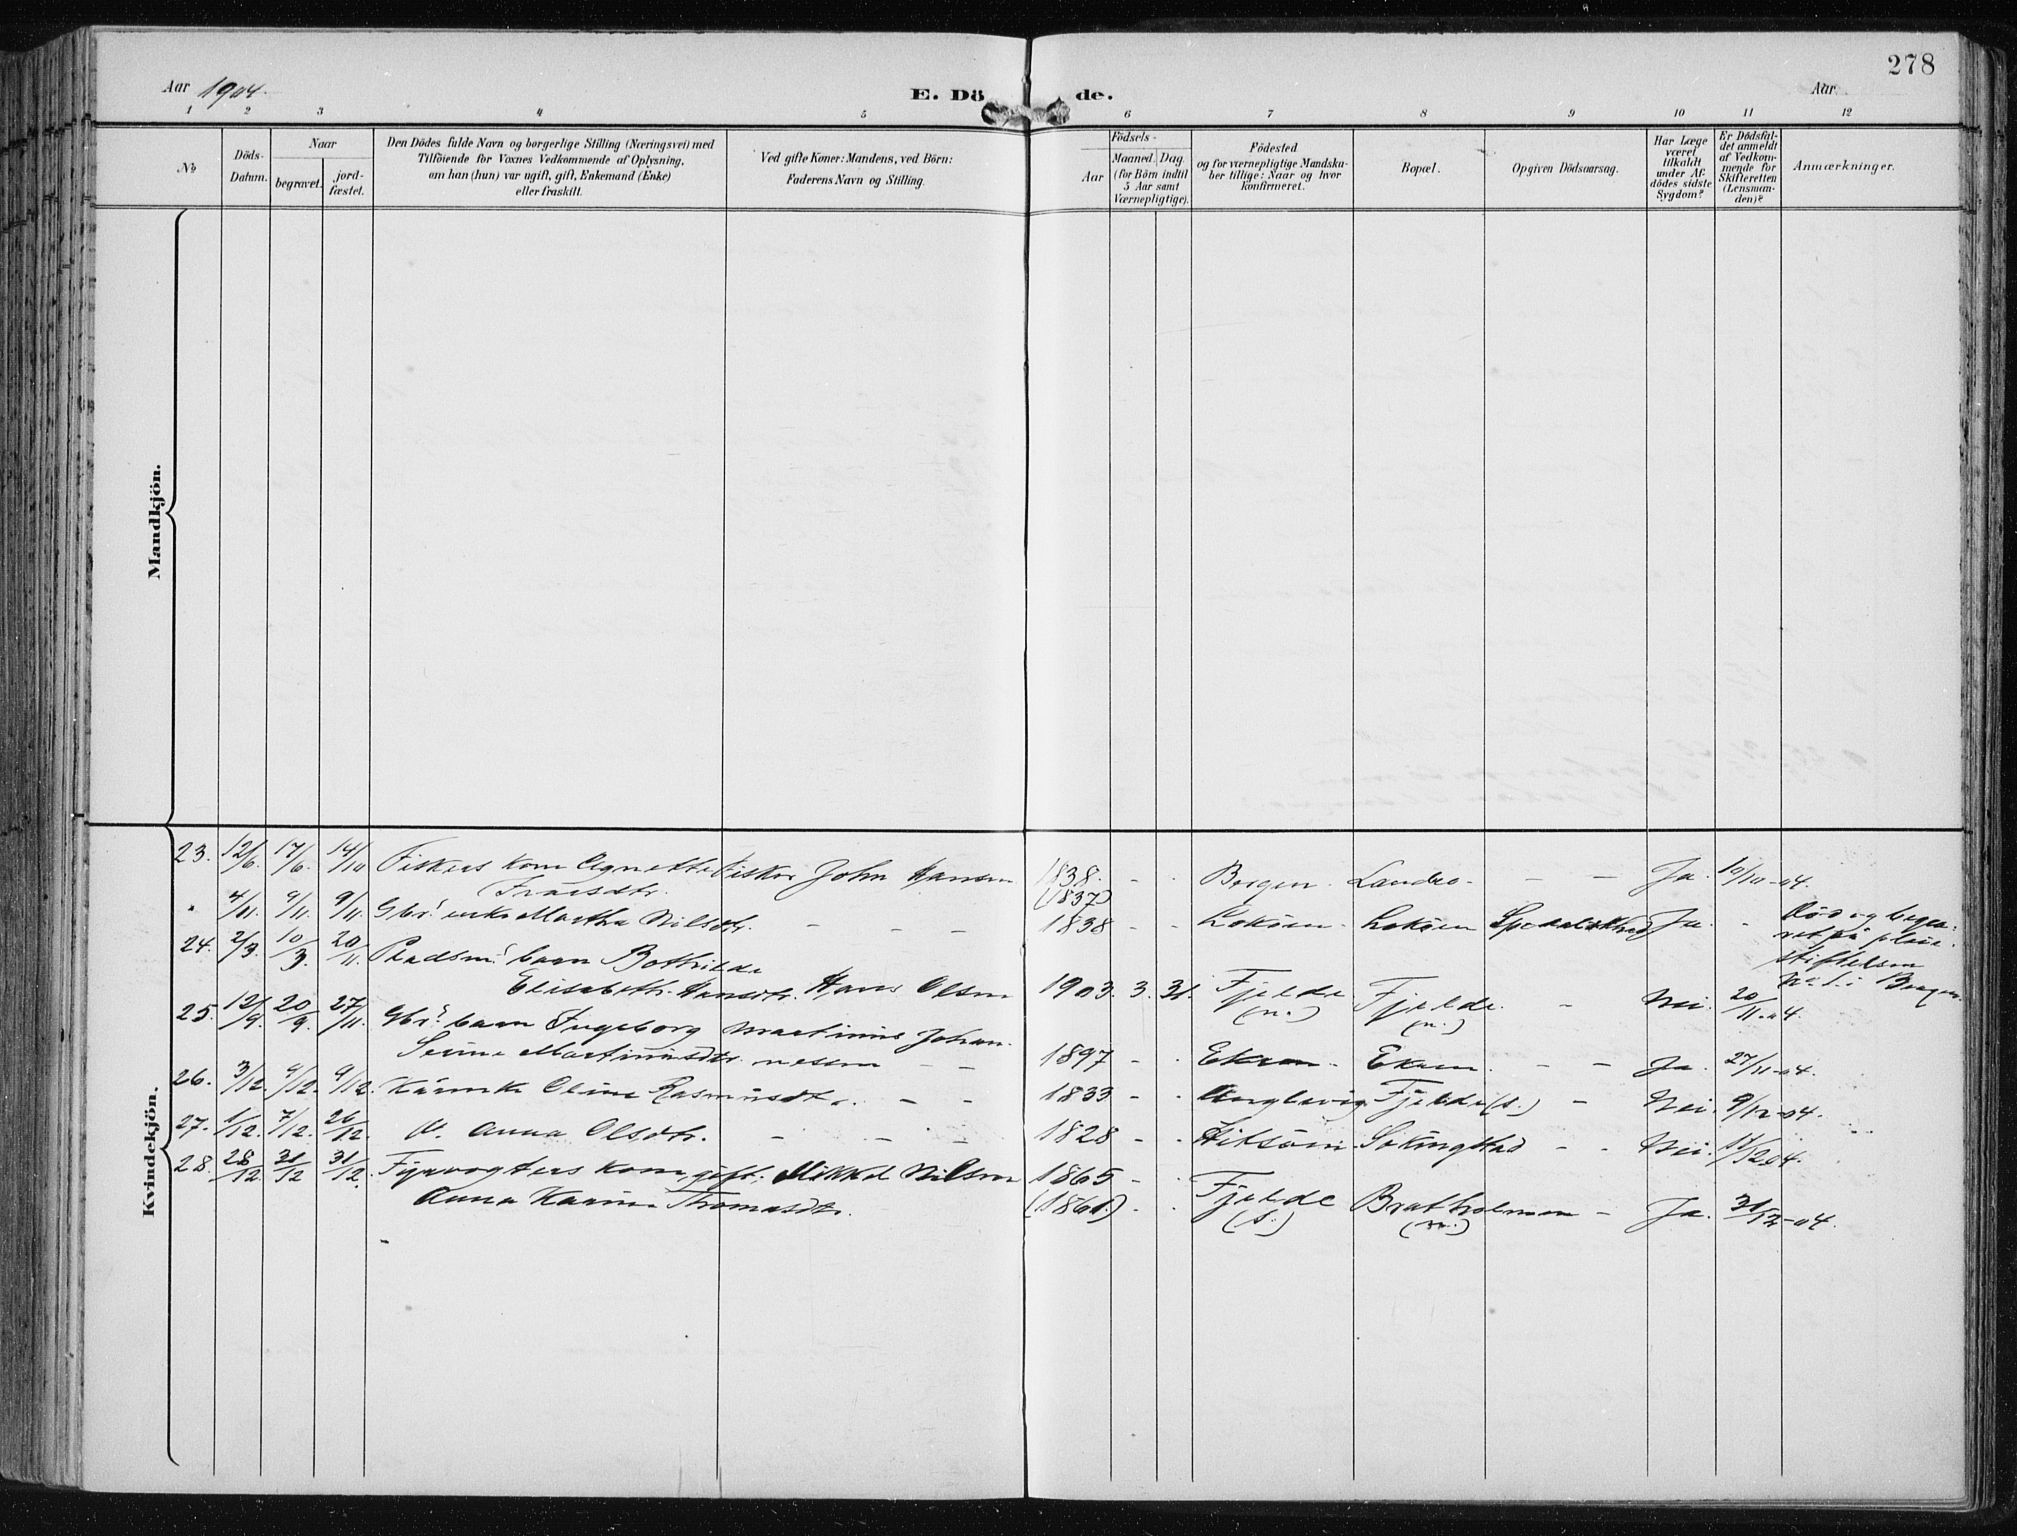 278
Aar 1904.
E. Dö de.
Aar
1 2 3 4 5 6 7 8 9 10 11 12
No
Döds-
Datum.
Naar
begravet.
jord-
fæstet.
Den Dödes fulde Navn og borgerlige Stilling (Næringsvei) med
Tilföiende for Voxnes Vedkommende af Oplysning,
om han (hun) var ugift, gift, Enkemand (Enke)
eller fraskilt.
Ved gifte Koner: Mandens, ved Börn:
Faderens Navn og Stilling.
Födsels-
Aar
Maaned. Dag.
(for Börn indtil
5 Aar samt
Værnepligtige).
Födested
og for værnepligtige Mandska-
ber tillige: Naar og hvor
konfirmeret.
Bopæl.
Opgiven Dödsaarsag.
Har Læge
været
tilkaldt
under Af-
dödes sidste
Sygdom?
Er Dödsfal-
det anmeldt
af Vedkom-
mende for
Skifteretten
(Lensman-
den)?
Anmærkninger.
Mandkjön.
Kvindekjön.
23. 12/6. 17/6. 14/10 Fiskers kone Agnette Fisker John Hansen 1838. - - Bergen. Landro. - - Ja. 10/10-04.
(1837)
" 4/11. 9/11. 9/11. Gbr. enke Martha Nilsdtr. - - - 1838 - - Loköen. Loköen Ja. -
24. 2/3. 10/3. 20/11. barn Bothilde
Elisabeth Hansdtr. Hans Olsen 1903. 3. 31. Fjelde Fjelde. - Nei. 20/11-04.
(n.) (n.)
25. 12/9. 20/9. 27/11. Gbr. barn Ingeborg Martinus Johan-
Serine Martinusdtr. nessen - - 1897 - - Ekren. Ekren. - - Ja. 27/11-04.
26. 3/12. 9/12. 9/12. Olina Rasmusdtr. - - 1833 - - Anglevig. Fjelde (s.) - Nei. 9/12-04.
27. 1/12. 7/12. 26/12. Anna Olsdtr. - - - 1828 - - - - Nei. 04.
28. 28/12. 31/12 31/12. Fyrvogters kone, gift, Mikkel Nilsen 1865 - - Fjelde Bratholmen - Ja. 31/12-04.
Anna Karine Thomasdtr. (1861.) - - (s.)